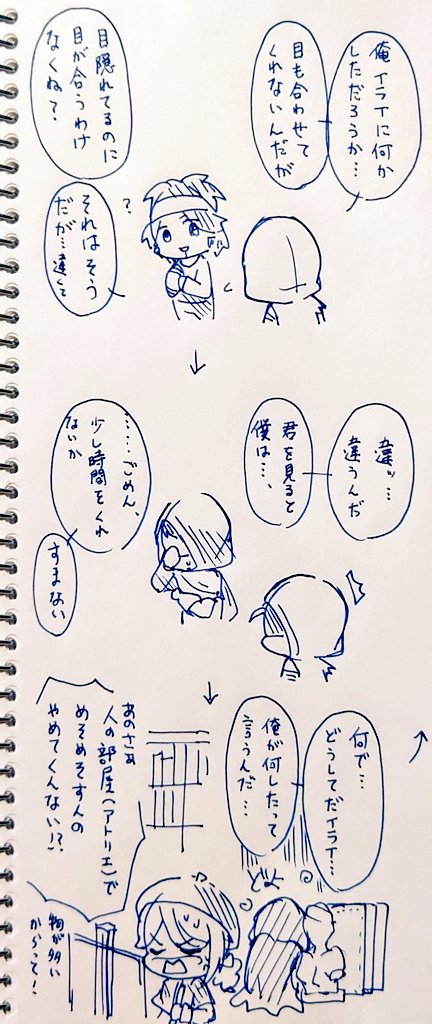 俺イライに何か
しただろうか…
目も合わせて
くれないんだが
目隠れてるのに
目が合うわけ
なくね?
?
それはそう
だが…違くて
違ッ…
違うんだ
君を見ると
僕は…、
……ごめん、
少し時間をくれ
ないか
すまない
何で…
どうしてだイライ…
俺が何したって
言うんだ…
どよ
あのさぁ
人の部屋(アトリエ)で
めそめそすんの
やめてくんない!?
物が多い
からって!